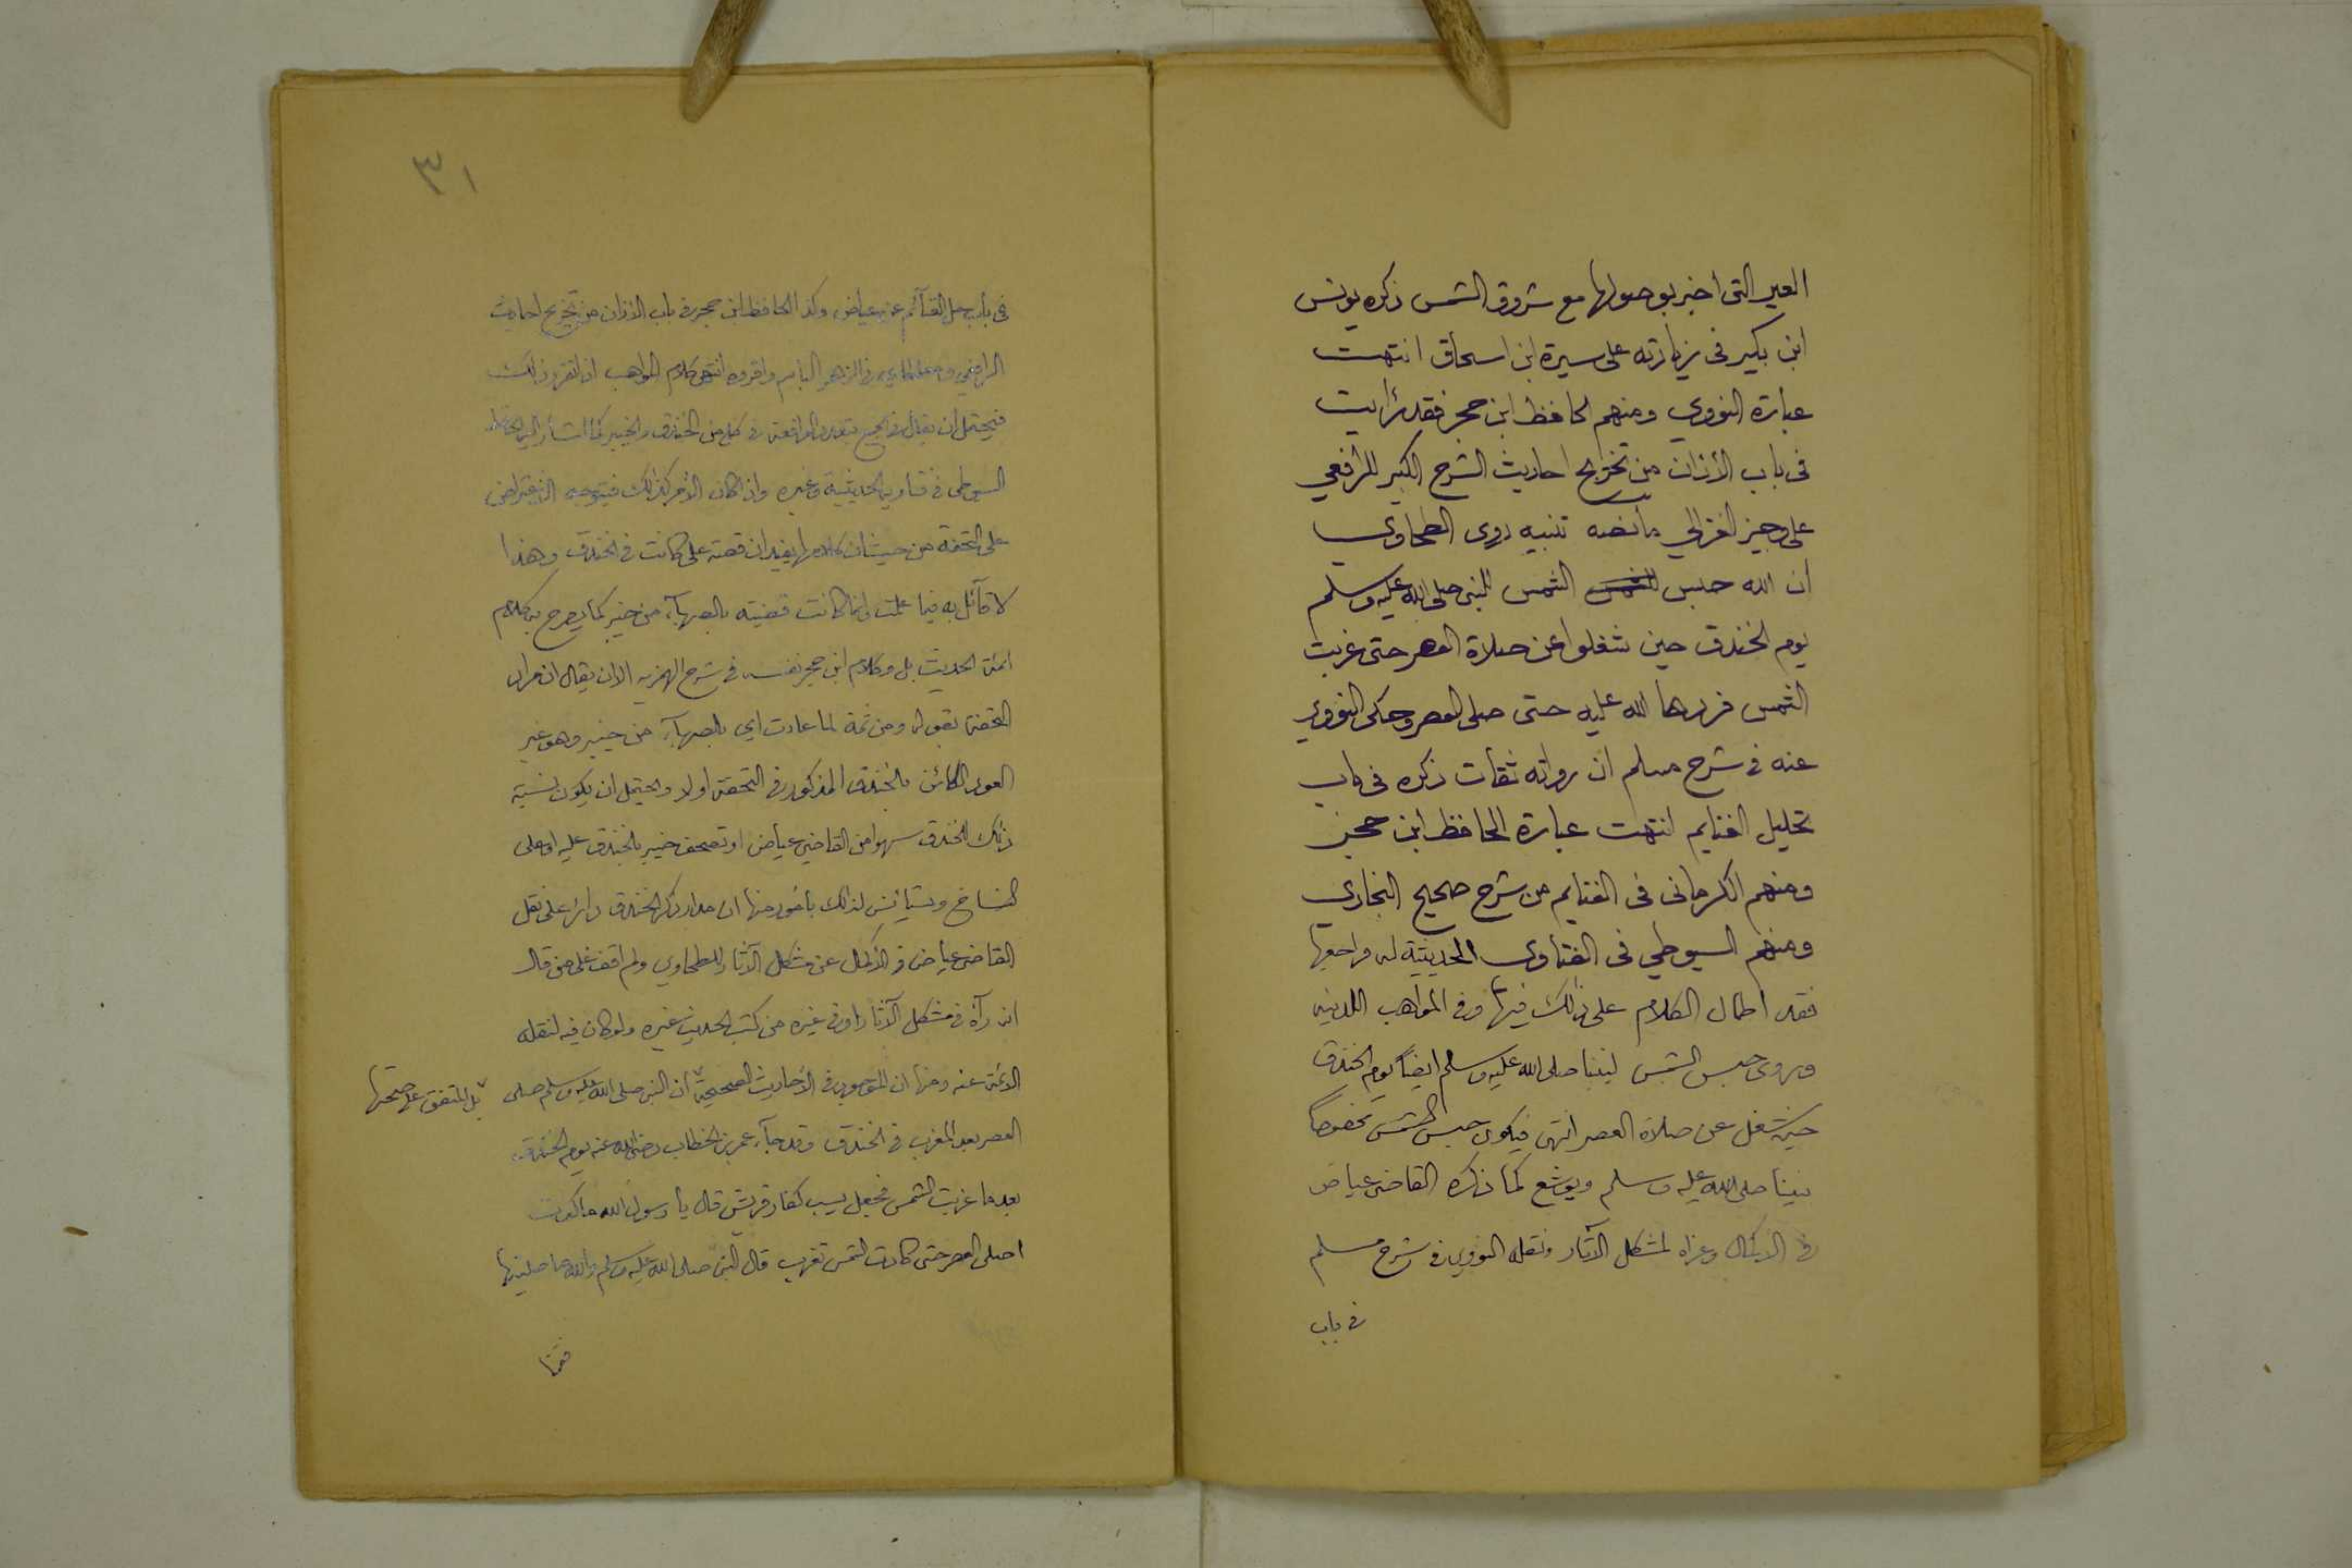 العير التى اخبر بوصولها مع شروق الشمس ذكره يونس
ابن بكير فى زيادته على سيرة ابن اسحاق انتهت
عبارة النووي ومنهم الحافظ ابن حجر فقد رأيت
فى باب الأذان من تخريج احاديث الشرح الكبير للرافعي
على وجيز الغزالي ما نصه تنبيه روى الطحاوي
ان الله حبس الشمس للنبي صلى الله عليه وسلم
يوم الخندق حين شغلوا عن صلاة العصر حتى غربت
الشمس فردها الله عليه حتى صلى العصر وحكى النووي
عنه فى شرح مسلم ان رواته ثقات ذكره فى باب
تحليل الغنايم انتهت عبارة الحافظ ابن حجر
ومنهم الكرمانى فى الغنايم من شرح صحيح البخاري
ومنهم السيوطي فى الفتاوى الحديثية له فراجعها
فقد اطال الكلام على ذلك فيها وفى المواهب اللدنيه
وروى حبس الشمس لنبينا صلى الله عليه وسلم ايضاً يوم الخندق
حين شغل عن صلاة العصر انتهى فيكون حبس الشمس مخصوصاً
بنبينا صلى الله عليه وسلم ويوشع كما ذكره القاضى عياض
فى الاكمال وعزاه لمشكل الآثار ونقله النووى فى شرح مسلم
فى باب
٣١
فى باب حل الغنآئم عن عياض وكذا الحافظ ابن حجر فى باب الأذان من تخريج احاديث
الرافعي ومغلطاى فى الزهر الباسم واقروه انتهى كلام المواهب اذا تقرر ذلك
فيحتمل ان يقال فى الجمع بتعدد الواقعة فى كل من الخندق وخيبر كما اشار اليه الحافظ
السيوطى فى فتاويه الحديثية وغيره واذا كان الأمر كذلك فيتوجه الاعتراض
على التحفة من حيث ان كلامها يفيد ان قصة على كانت فى الخندق وهذا
لا قآئل به فيما علمت وانما كانت قضيته بالصهبآء من خيبر كما يصرح به كلام
ائمة الحديث بل وكلام ابن حجر نفسه فى شرح الهمزيه الا ان يقال ان مراد
التحفة بقوله ومن ثمة لما عادت اي بالصهبآء من خيبر وهو غير
العود الكائن بالخندق المذكور فى التحفة اولا ويحتمل ان يكون نسبة
ذلك للخندق سهوا من القاضى عياض او تصحف خيبر بالخندق عليه او على
النساخ ويستأنس لذلك بأمور منها ان مدار ذكر الخندق دائر على نقل
القاضى عياض فى الأكمال عن مشكل الآثار للطحاوي ولم اقف على من قال
انه رآه فى مشكل الآثار او فى غيره من كتب الحديث غيره ولو كان فيه لنقله
الائمة عنه ومنها ان الموجود فى الأحاديث الصحيحة ان النبى صلى الله عليه وسلم صلى
بل المتفق على صحتها
العصر بعد المغرب فى الخندق وقد جآء عمر بن الخطاب رضى الله عنه يوم الخندق
بعد ما غربت الشمس فجعل يسب كفار قريش قال يا رسول الله ما كدت
اصلى العصر حتى كادت الشمس تغرب قال النبى صلى الله عليه وسلم والله ما صليتها
فقمنا